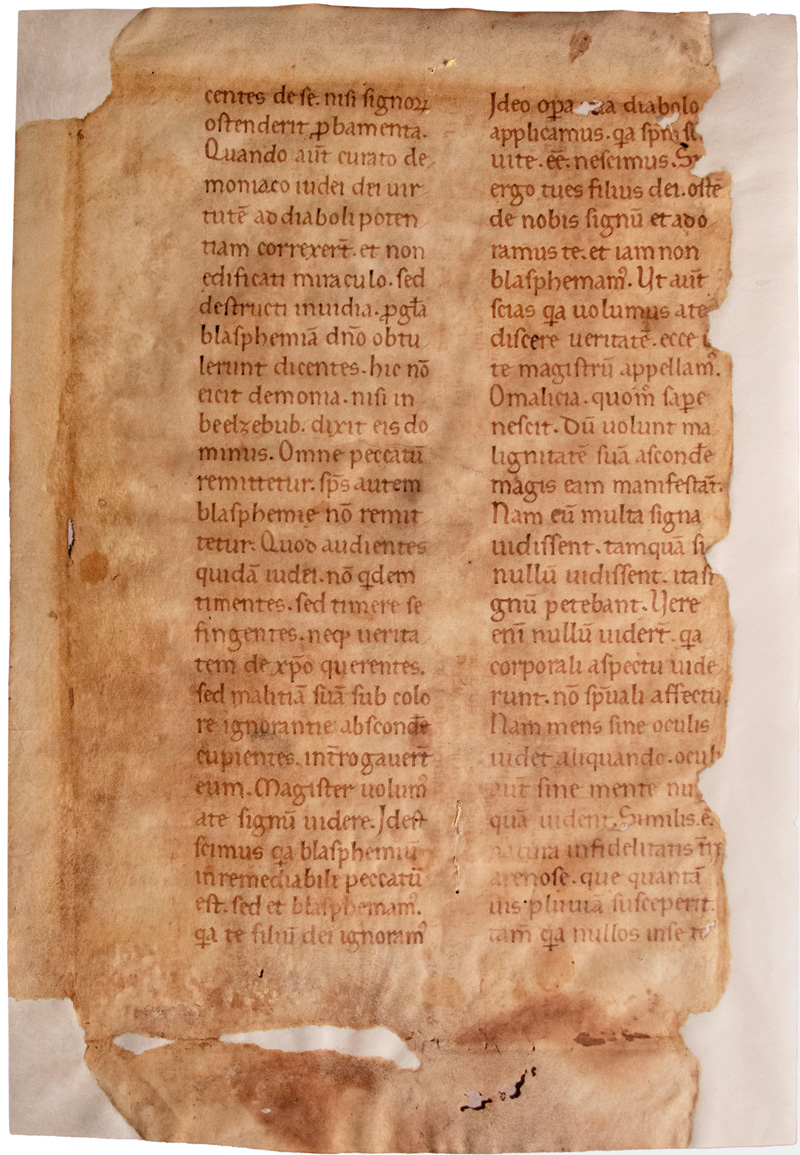 centes de se. nisi signoꝝ
ostenderit ꝓbamenta.
Quando aut̄ curato de
moniaco iudei dei uir
tutē ad diaboli poten
tiam correxer̄t. et non
edificati miraculo. sed
destructi inuidia. ꝓ gr̄a
blasphemiā dn̄o obtu
lerunt dicentes. hic nō
eicit demonia. nisi in
beelzebub. dixit eis do
minus. Omne peccatū
remittetur. sp̄s autem
blasphemie nō remit
tetur. Quod audientes
quidā iudei. nō qͥdem
timentes. sed timere se
fingentes. neqꝫ uerita
tem de xp̄o querentes.
sed malitiā suā sub colo
re ignorantie absconde
cupientes. int̄rogauer̄t
eum. Magister uolumꝰ
a te signū uidere. Idest
scimus qa blasphemiū
inremediabili peccatū
est. sed et blasphemamꝰ.
qa te filiū dei ignoramꝰ
Ideo opa diabolo
applicamus. qa sp̄m
uite. ēē. nescimus. Si
ergo tu es filius dei. ostē
de nobis signū et ado
ramus te. et iam non
blasphemamꝰ. Ut aut̄
scias qa uolumus a te
discere ueritatē. ecce
te magistrū appellamꝰ.
O malicia. quom̊ sape
nescit. Dū uolunt ma
lignitatē suā asconde
magis eam manifestat̄.
Nam cū multa signa
uidissent. tamquā si
nullū uidissent. ita si
gnū petebant. Uere
eni nullū uider̄t. qa
corporali aspectu uide
runt. nō sp̄uali affectu.
Nam mens sine oculis
uidet aliquando. ocul
aut̄ sine mente nu
quā uident. Similis. ē.
natura infidelitatis
arenose. que quantā
uis pluuiā susceperit.
tam̄ qa nullos in se